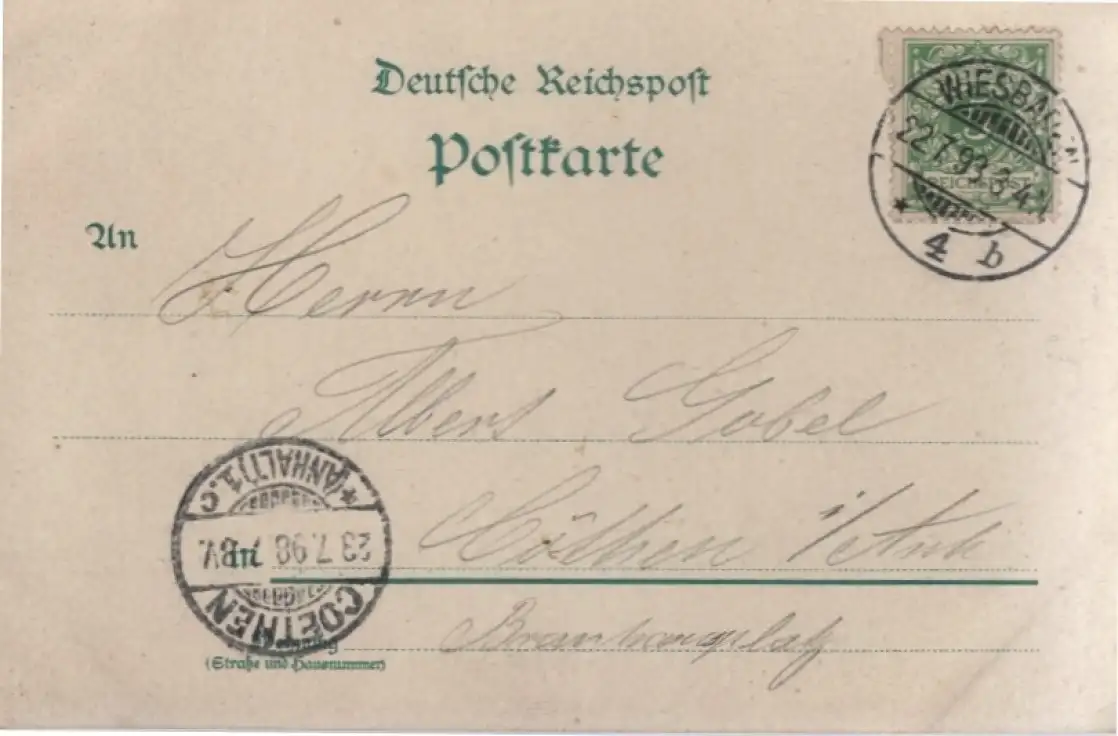 Deutsche Reichspost
Postkarte
WIESBADEN
22.7.98.3-4N
* 4 b
REICHSPOST
An
Herrn
Albert Gobel
Cöthen i/Anh
in
COETHEN
23.7.98 7-8V.
*(ANHALT)1.c
(Straße und Hausnummer)